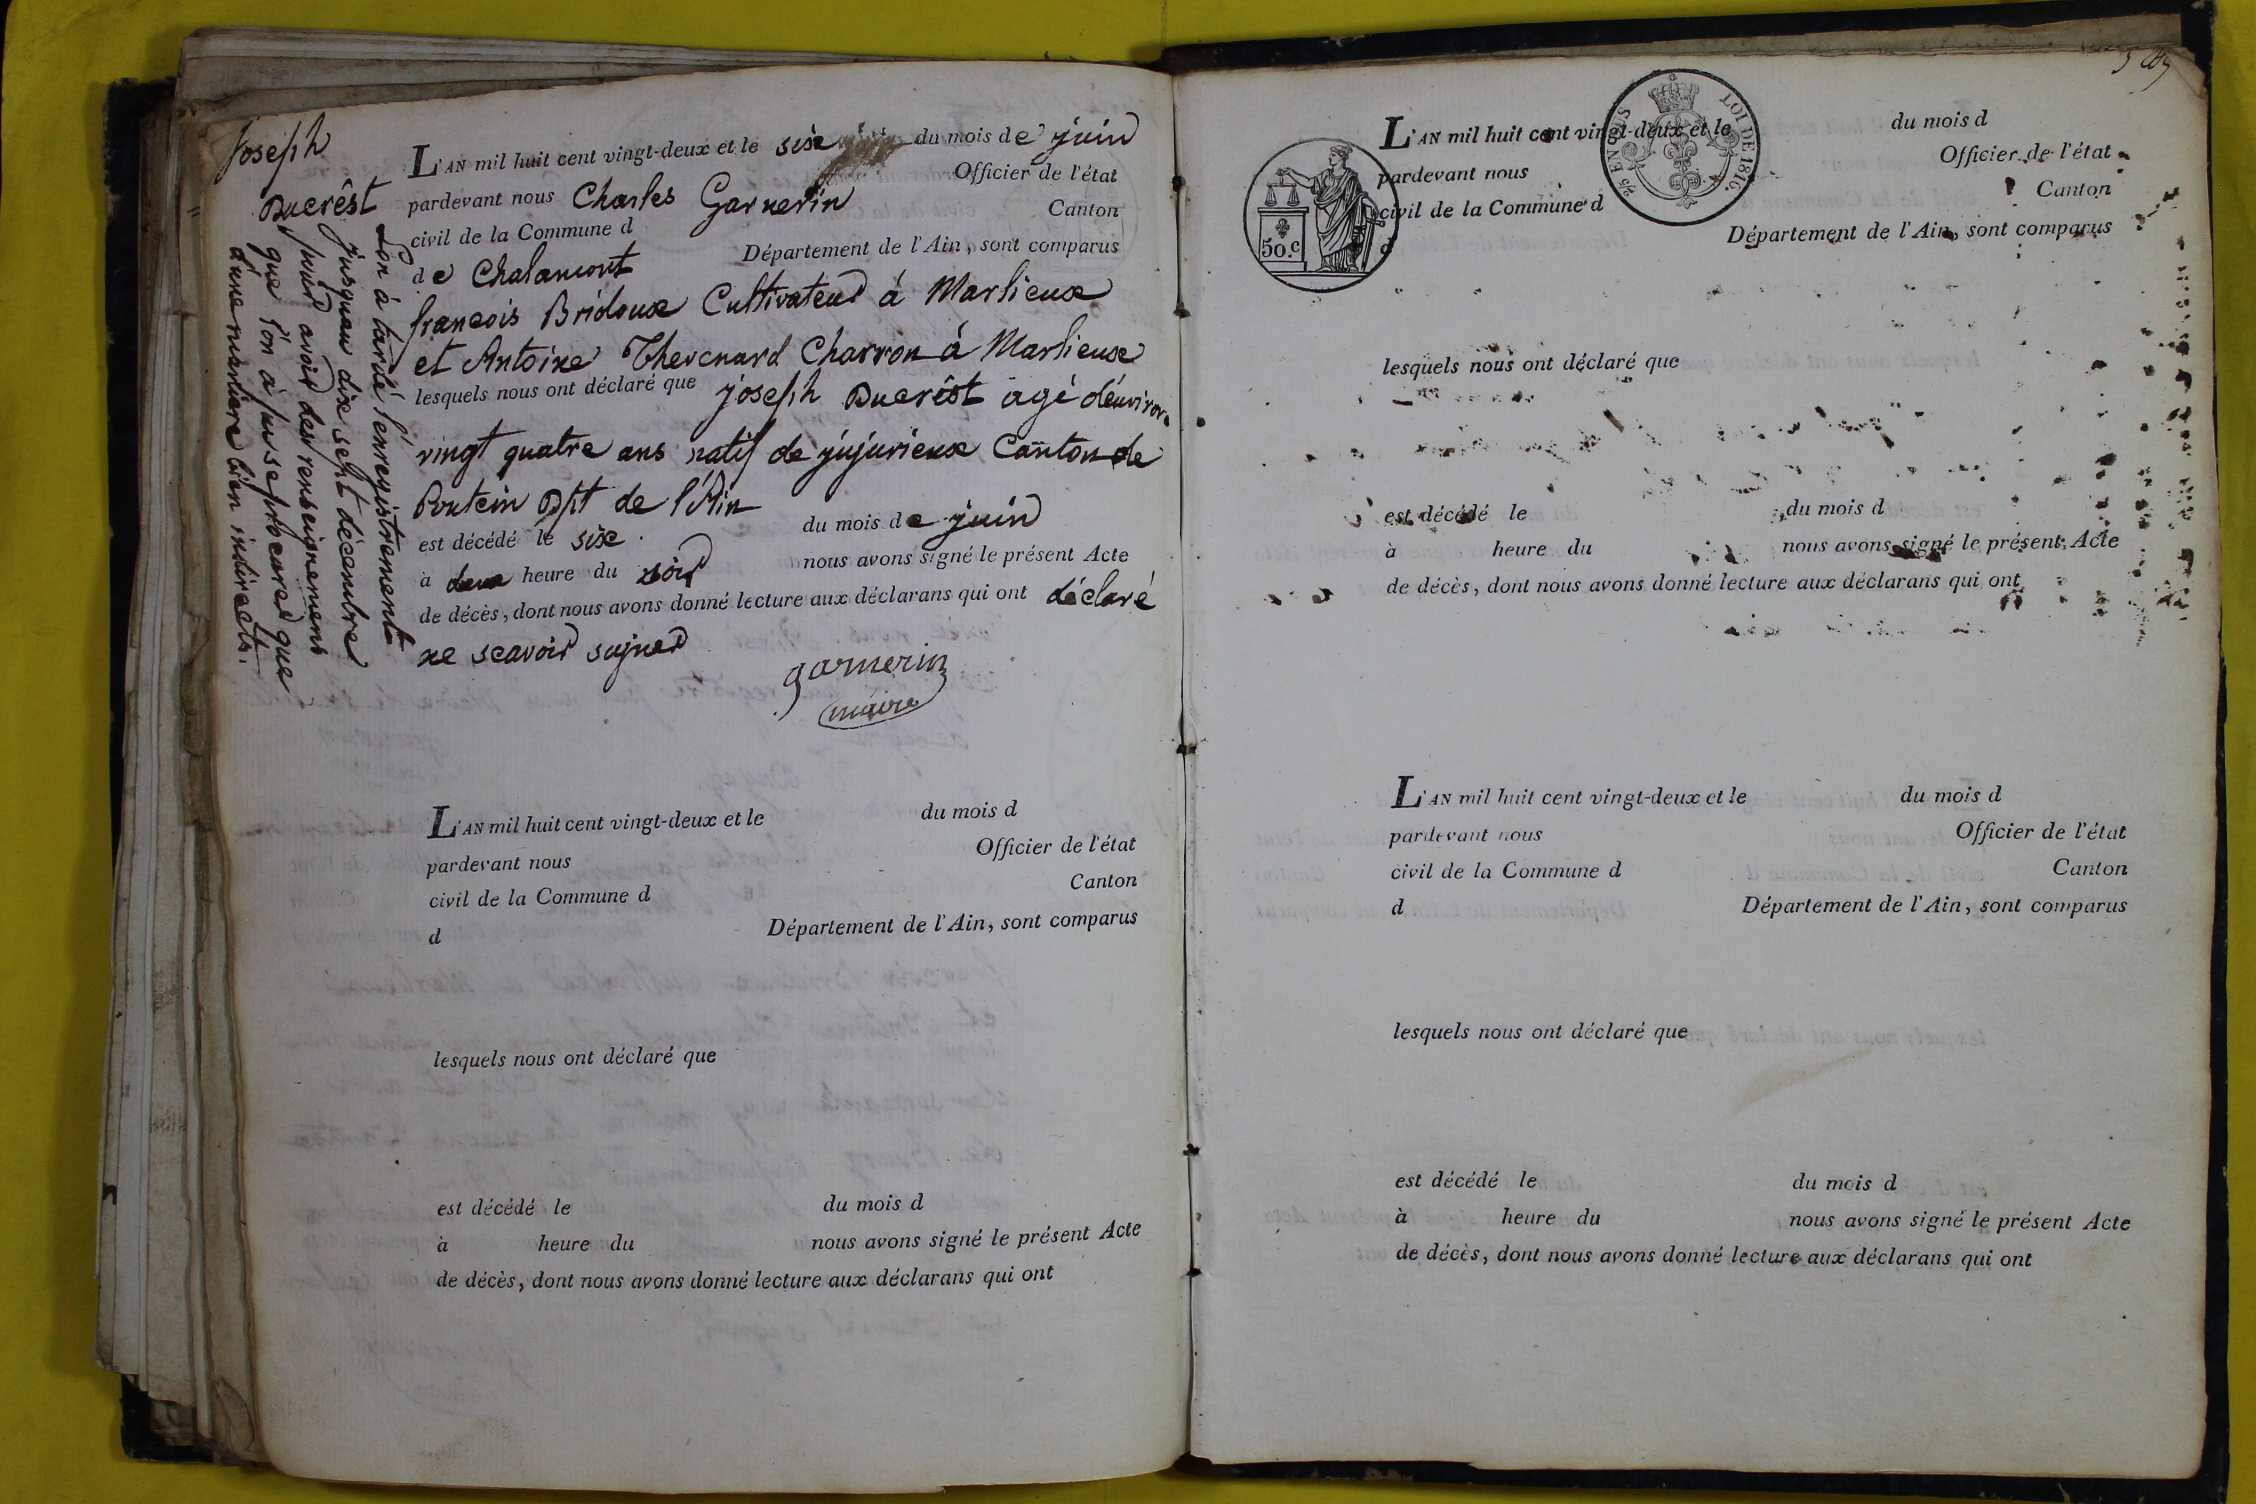 Joseph
Ducrêst
L'on à tardé l'enregistrement
jusquau dixe sept décembre
pour avoir des renseignemens
que l'on à pu se procurer que
d'une maniere bien indirecte.
L'AN mil huit cent vingt-deux et le sixe du mois de juin
pardevant nous Charles Garnerin Officier de l'état
civil de la Commune d Canton
de Chalamont Département de l'Ain, sont comparus
francois Bridoux Cultivateur á Marlieux
et Antoine Thevenard Charron á Marlieux
lesquels nous ont déclaré que joseph Ducrêst agé d'environ
vingt quatre ans natif de jujurieux Canton de
Pontein Dpt de l'Ain
est décédé le sixe du mois de juin
à deux heure du soir nous avons signé le présent Acte
de décès, dont nous avons donné lecture aux déclarans qui ont déclaré
ne scavoir signer
garnerin
maire
L'AN mil huit cent vingt-deux et le du mois d
pardevant nous Officier de l'état
civil de la Commune d Canton
d Département de l'Ain, sont comparus
lesquels nous ont déclaré que
est décédé le du mois d
à heure du nous avons signé le présent Acte
de décès, dont nous avons donné lecture aux déclarans qui ont
LOI DE 1816.
50.c
L'AN mil huit cent vingt-deux et le du mois d
pardevant nous Officier de l'état
civil de la Commune d Canton
d Département de l'Ain, sont comparus
lesquels nous ont déclaré que
est décédé le du mois d
à heure du nous avons signé le présent Acte
de décès, dont nous avons donné lecture aux déclarans qui ont
L'AN mil huit cent vingt-deux et le du mois d
pardevant nous Officier de l'état
civil de la Commune d Canton
d Département de l'Ain, sont comparus
lesquels nous ont déclaré que
est décédé le du mois d
à heure du nous avons signé le présent Acte
de décès, dont nous avons donné lecture aux déclarans qui ont